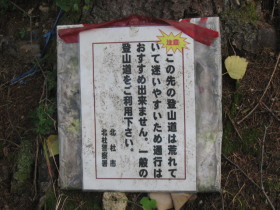 注意
この先の登山道は荒れて
いて迷いやすいため通行は
おすすめ出来ません。一般の
登山道をご利用下さい。
北杜市
北杜警察署